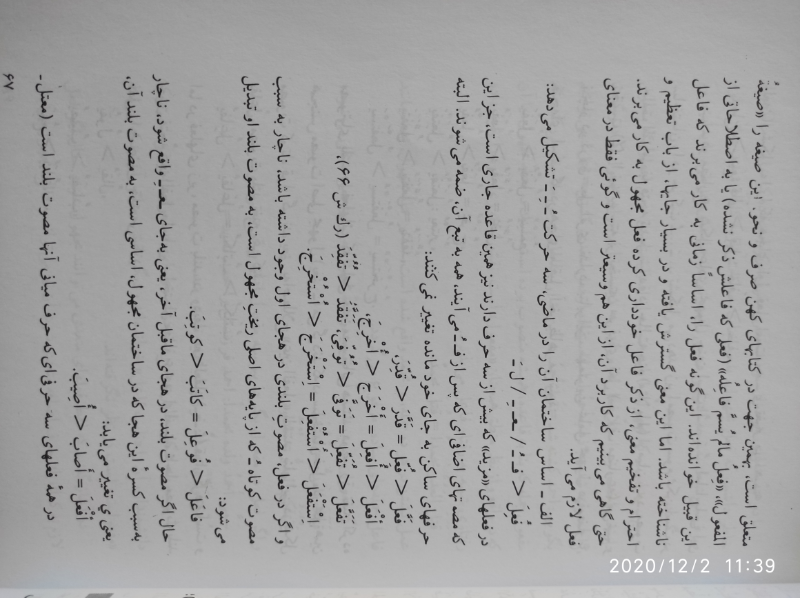 متعلق است، بهمین جهت در کتابهای کهن صرف و نحو. این صیغه را «صیغهٔ
المفعول»، «فِعلُ مالَم یُسَمَّ فاعِلُه» (فعلی که فاعلش ذکر نشده) یا به اصطلاحاتی از
این قبیل خوانده‌اند. این‌گونه فعل را، اساساً زمانی به کار می‌برند که فاعل
ناشناخته باشد. اما این معنی گسترش یافته و در بسیار جایها، از باب تعظیم و
احترام و تفخیم معنی، از ذکر فاعل خودداری کرده فعل مجهول به کار می‌برند.
حتی گاهی می‌بینیم که کاربرد آن، از این هم وسیعتر است و گوئی فقط در معنای
فعل لازم می‌آید.
الف ـ اساس ساختمان آن را در ماضی، سه حرکت ـُ ـِ ـَ تشکیل می‌دهد:
فُعِلَ < فـُ / ـعـِ / لَ ـَ
در فعلهای «مزید» که بیش از سه حرف دارند نیز همین قاعده جاری است، جز این
که مصوتهای اضافی‌ای که پس از فـُ می‌آیند، همه به تبع آن، ضمه می‌شوند. البته
حرفهای ساکن به جای خود مانده تغییر نمی‌کنند:
فَعَّلَ > فُعِّلَ = قَدَّرَ > قُدِّرَ،
اَفْعَلَ > اُفْعِلَ = اَخْرَجَ > اُخْرِجَ،
تَفَعَّلَ > تُفُعِّلَ = تَوَفَّی > تُوُفِّیَ، تَفَقَّدَ > تُفُقِّدَ (رك ش ۶۶)،
اِسْتَفْعَلَ > اُسْتُفْعِلَ = اِسْتَخْرَجَ > اُسْتُخْرِجَ.
و اگر در فعل، مصوت بلندی در هجای اول وجود داشته باشد، ناچار به سبب
مصوت کوتاه ـُ که از پایه‌های اصلی ریخت مجهول است، به مصوت بلند او تبدیل
می‌شود:
فاعَلَ > فُوعِلَ = کاتَبَ > کوتِبَ.
حال اگر مصوت بلند، در هجای ماقبل آخر، یعنی به‌جای ـعـَ واقع شود، ناچار
به سبب کسرهٔ این هجا که در ساختمان مجهول، اساسی است، به مصوت بلند آن،
یعنی ی تغییر می‌یابد:
اَفْعَلَ = اَصابَ > اُصیبَ.
در همهٔ فعلهای سه حرفی‌ای که حرف میانی آنها مصوت بلند است (معتل ـ
۶۷
2020/12/2 11:39